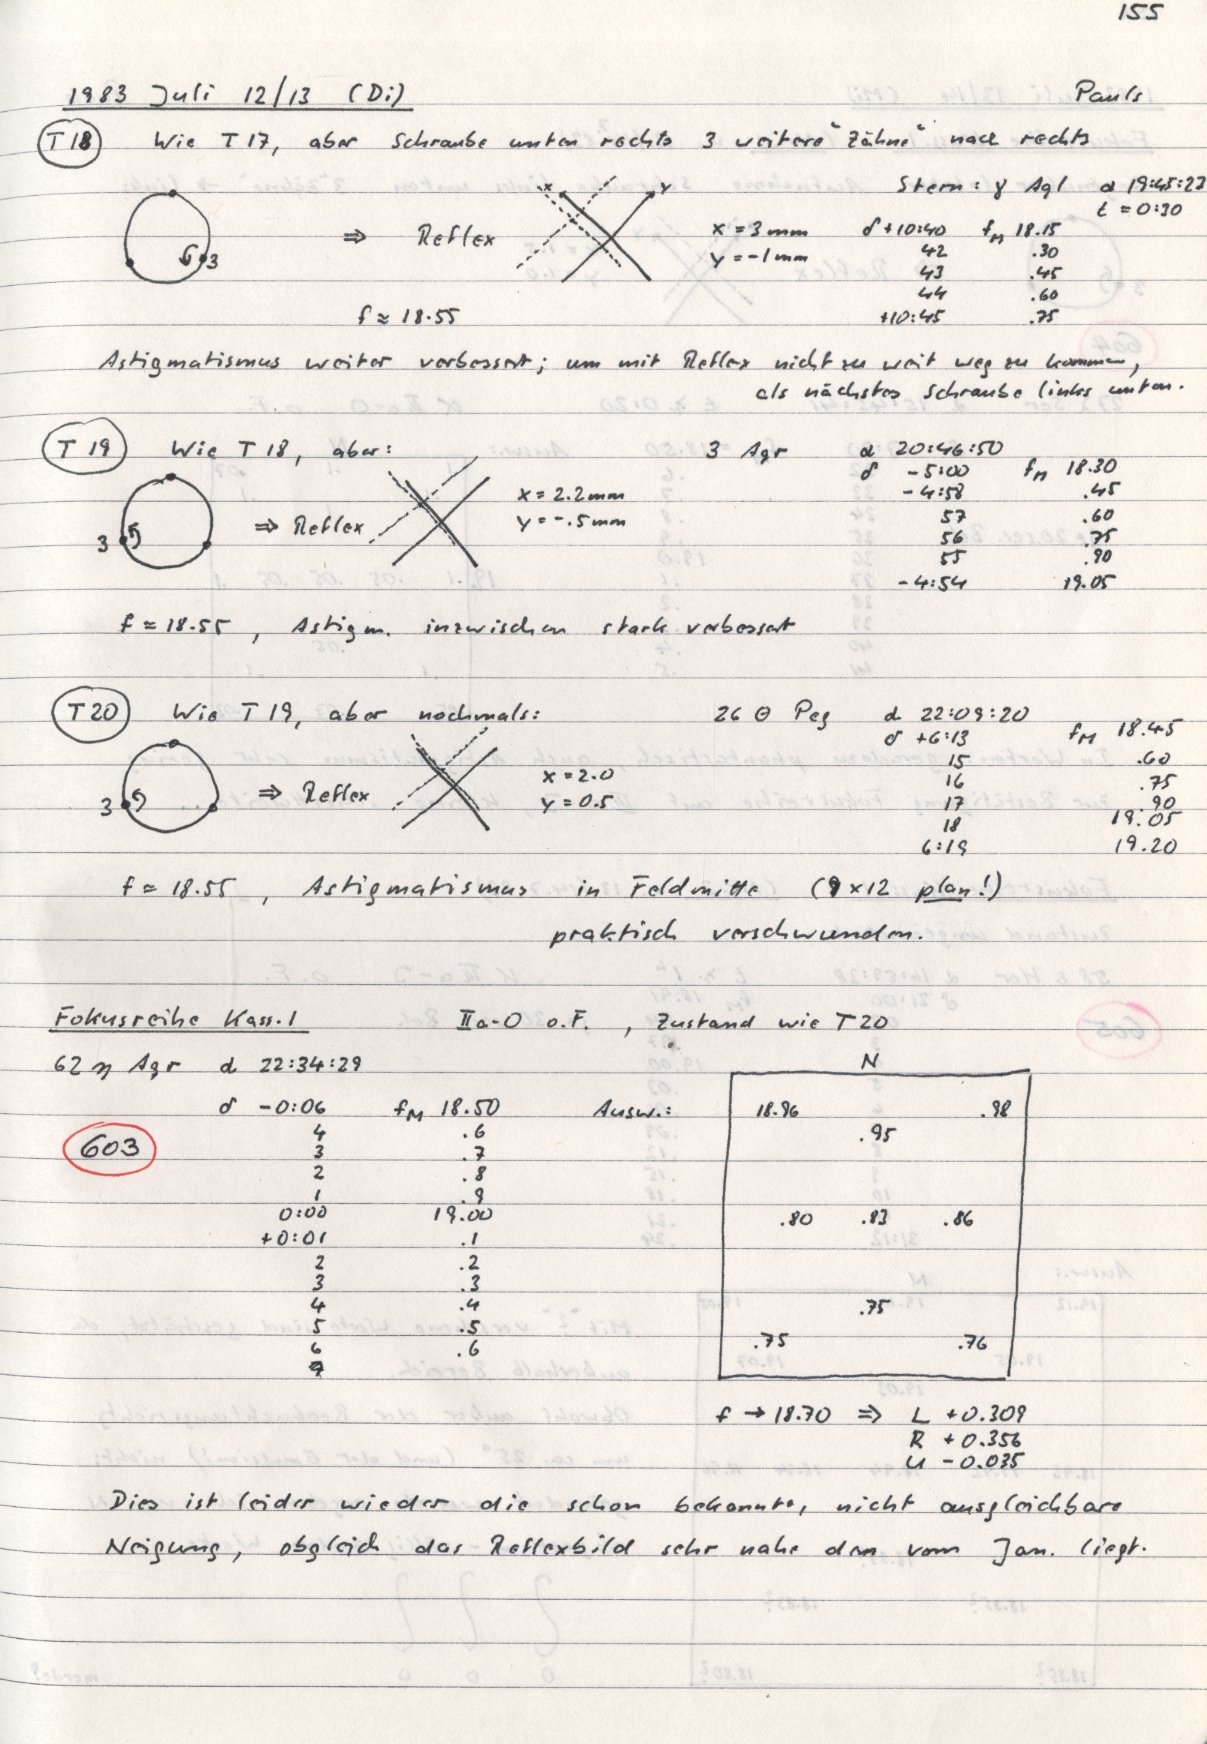 155
1983 Juli 12/13 (Di) Pauls
T18 Wie T17, aber Schraube unten rechts 3 weitere "Zähne" nach rechts
Stern: γ Aql α 19:45:23
t = 0:30
3 ⇒ Reflex x y x = 3 mm δ +10:40 fM 18.15
y = -1 mm 42 .30
43 .45
44 .60
f ≈ 18.55 +10:45 .75
Astigmatismus weiter verbessert; um mit Reflex nicht zu weit weg zu kommen,
als nächstes Schraube links unten.
T19 Wie T18, aber: 3 Aqr α 20:46:50
δ -5:00 fM 18.30
x = 2.2 mm -4:58 .45
3 ⇒ Reflex y = -.5 mm 57 .60
56 .75
55 .90
-4:54 19.05
f ≈ 18.55, Astigm. inzwischen stark verbessert
T20 Wie T19, aber nochmals: 26 θ Peg α 22:09:20
δ +6:13 fM 18.45
15 .60
x = 2.0 16 .75
3 ⇒ Reflex y = 0.5 17 .90
18 19.05
6:19 19.20
f ≈ 18.55, Astigmatismus in Feldmitte (9x12 plan!)
praktisch verschwunden.
Fokusreihe Kass. 1 IIa-O o.F., Zustand wie T20
62 η Aqr α 22:34:29 N
δ -0:06 fM 18.50 Ausw.: 18.96 .98
603 4 .6 .95
3 .7
2 .8
1 .9
0:00 19.00 .80 .83 .86
+0:01 .1
2 .2
3 .3
4 .4 .75
5 .5
6 .6 .75 .76
f → 18.70 ⇒ L +0.309
R +0.356
U -0.035
Dies ist leider wieder die schon bekannte, nicht ausgleichbare
Neigung, obgleich das Reflexbild sehr nahe dem vom Jan. liegt.